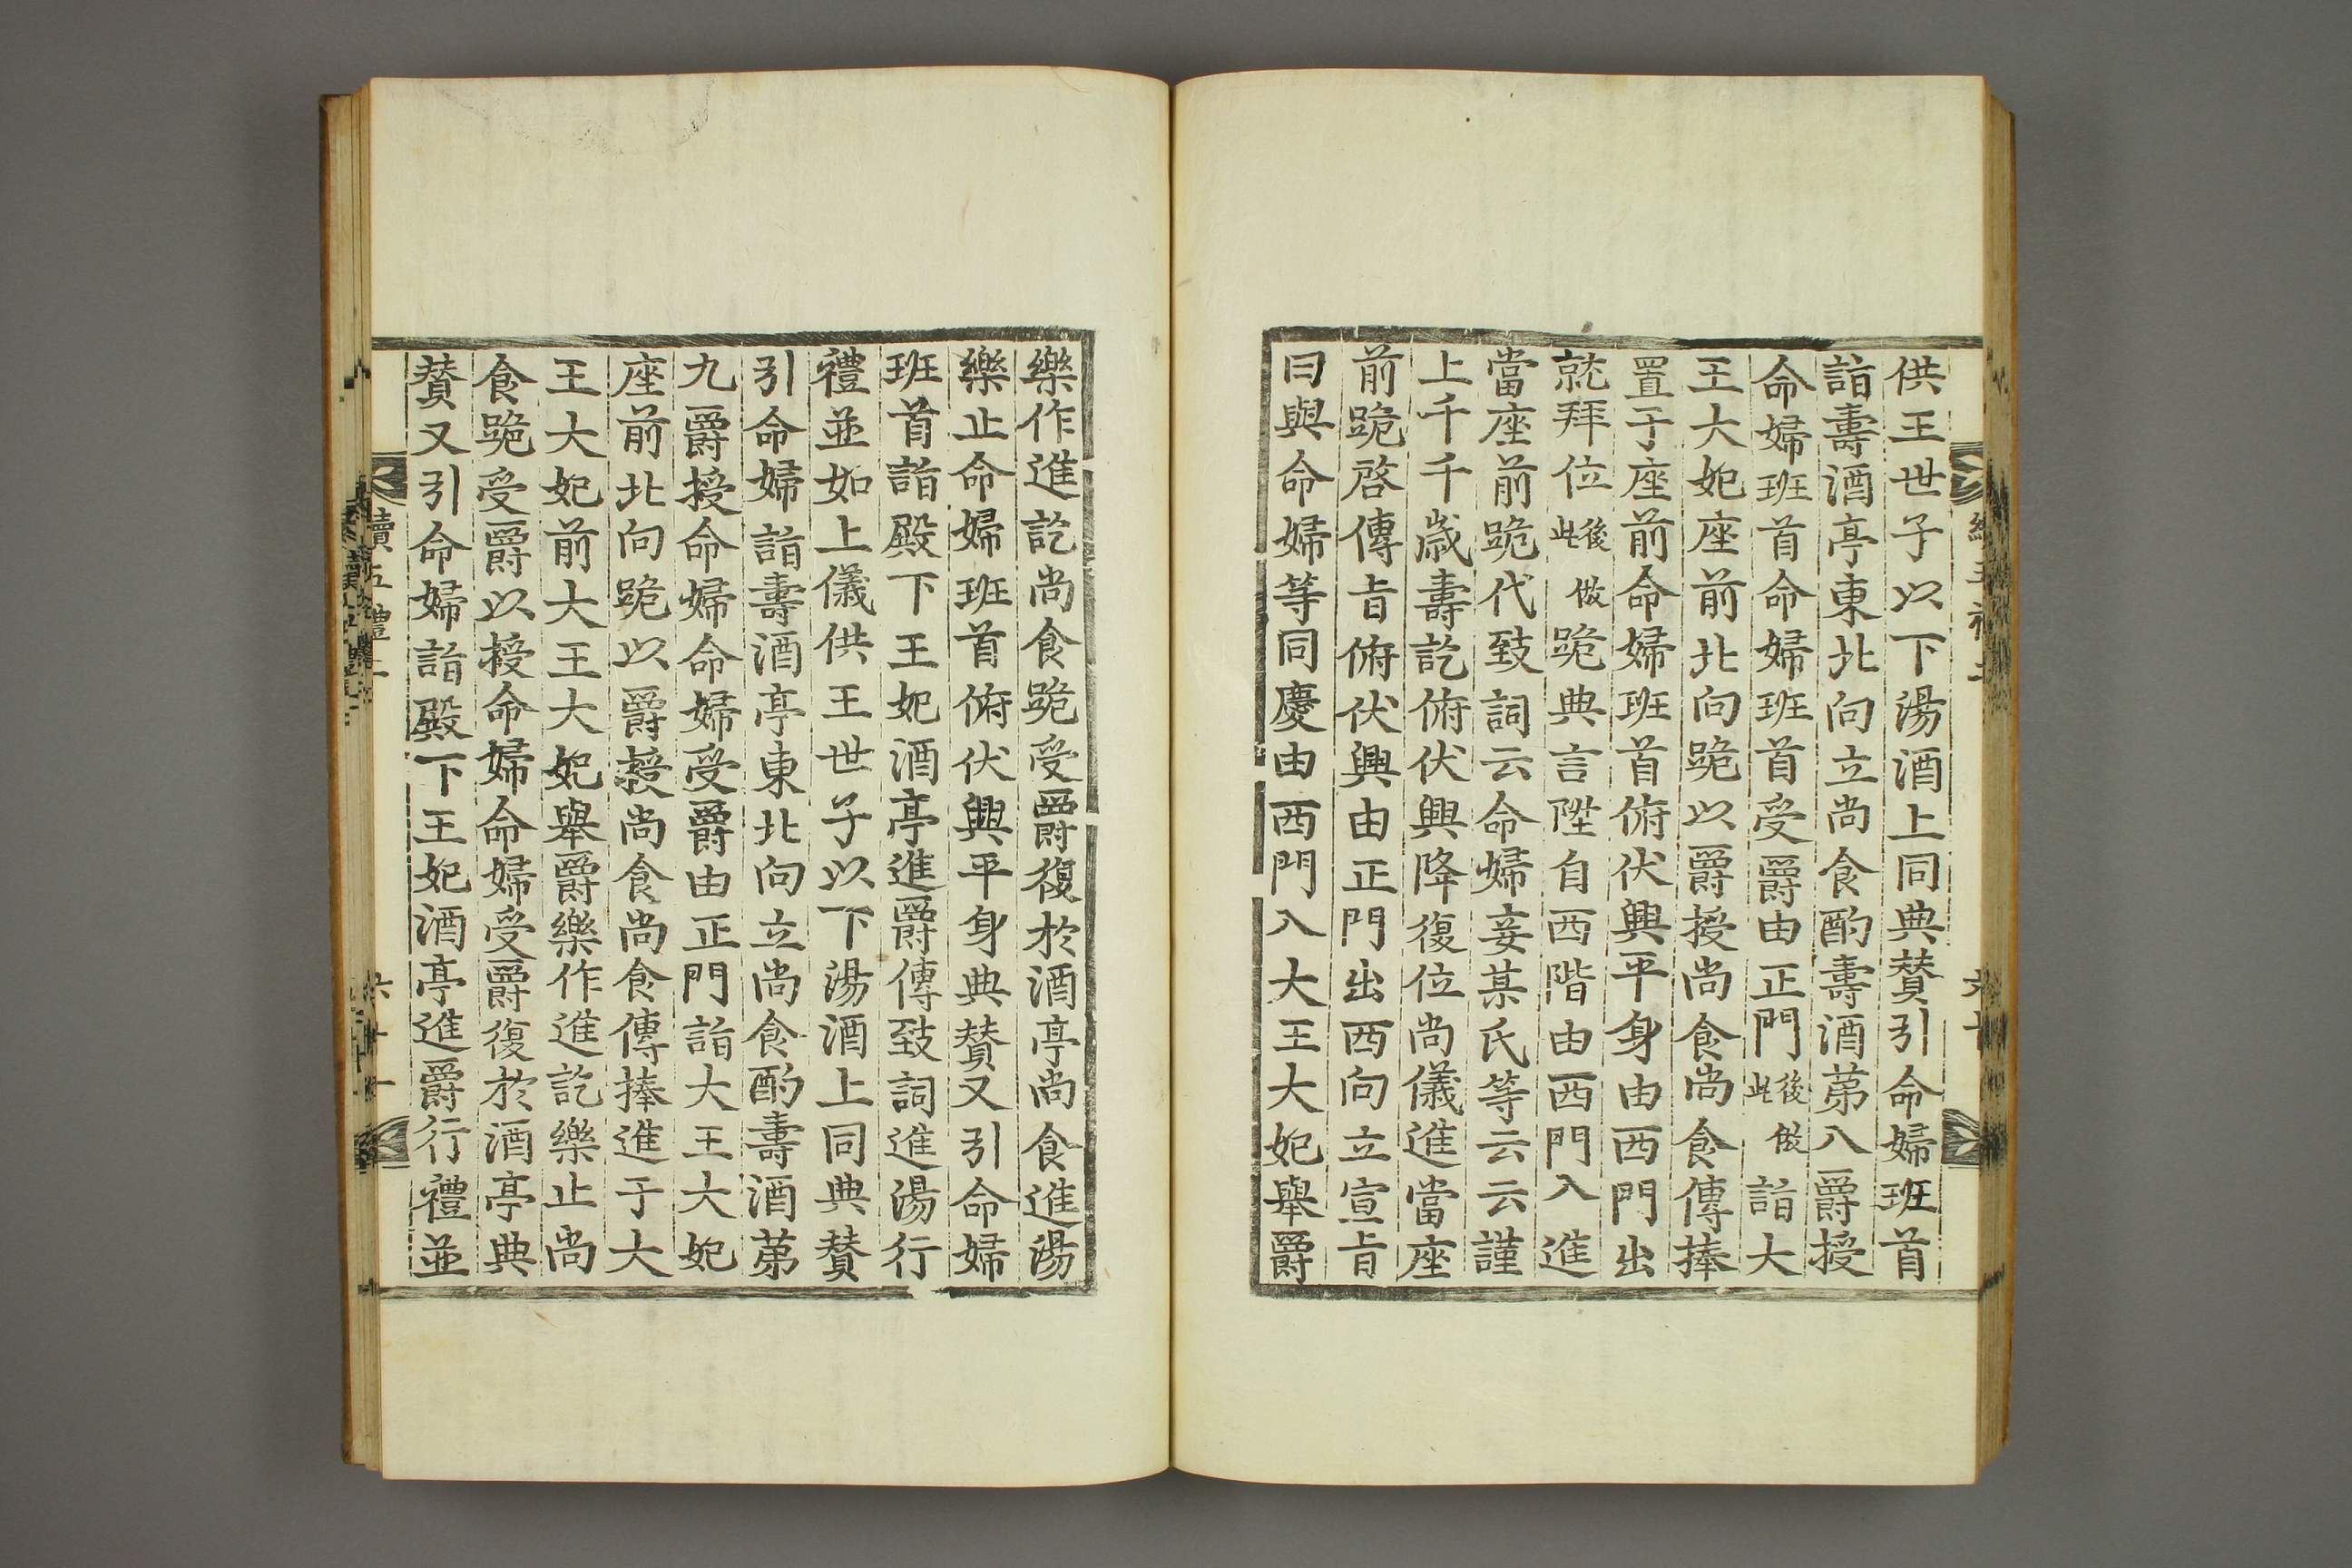 供王世子以下湯酒上同典贊引命婦班首
詣壽酒亭東北向立尚食酌壽酒苐八爵授
命婦班首命婦班首受爵由正門後倣此詣大
王大妃座前北向跪以爵授尚食尚食傳捧
置于座前命婦班首俯伏興平身由西門出
就拜位後倣此跪典言陞自西階由西門入進
當座前跪代致詞云命婦妾某氏等云云謹
上千千歲壽訖俯伏興降復位尚儀進當座
前跪啓傳旨俯伏興由正門出西向立宣旨
曰與命婦等同慶由西門入大王大妃舉爵
樂作進訖尚食跪受爵復於酒亭尚食進湯
樂止命婦班首俯伏興平身典贊又引命婦
班首詣殿下王妃酒亭進爵傳致詞進湯行
禮並如上儀供王世子以下湯酒上同典贊
引命婦詣壽酒亭東北向立尚食酌壽酒苐
九爵授命婦命婦受爵由正門詣大王大妃
座前北向跪以爵授尚食尚食傳捧進于大
王大妃前大王大妃舉爵樂作進訖樂止尚
食跪受爵以授命婦命婦受爵復於酒亭典
贊又引命婦詣殿下王妃酒亭進爵行禮並
續五禮二
六十一